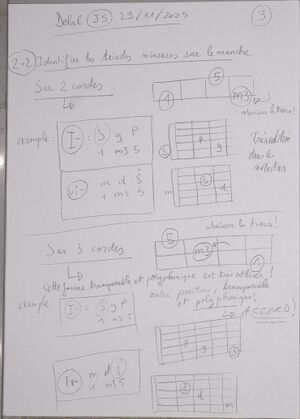 Debut JS 29/11/2025
3
2.2 Identifier les triades mineures sur le manche
Sur 2 cordes
1 5 m3
abaisser la tierce!
exemple:
I- = S g P
1 m3 5
S P g
Très utilisé
dans les
mélodies
vi- m d S
1 m3 5
m d
abaisser la tierce!
Sur 3 cordes
5 m3 1
Cette forme transposable et polyphonique est très utilisée!
autre position, transposable
et polyphonique!
ACCORD!
exemple
I- = S g P
1 m3 5
P g S
iv- m d S
1 m3 5
S d m